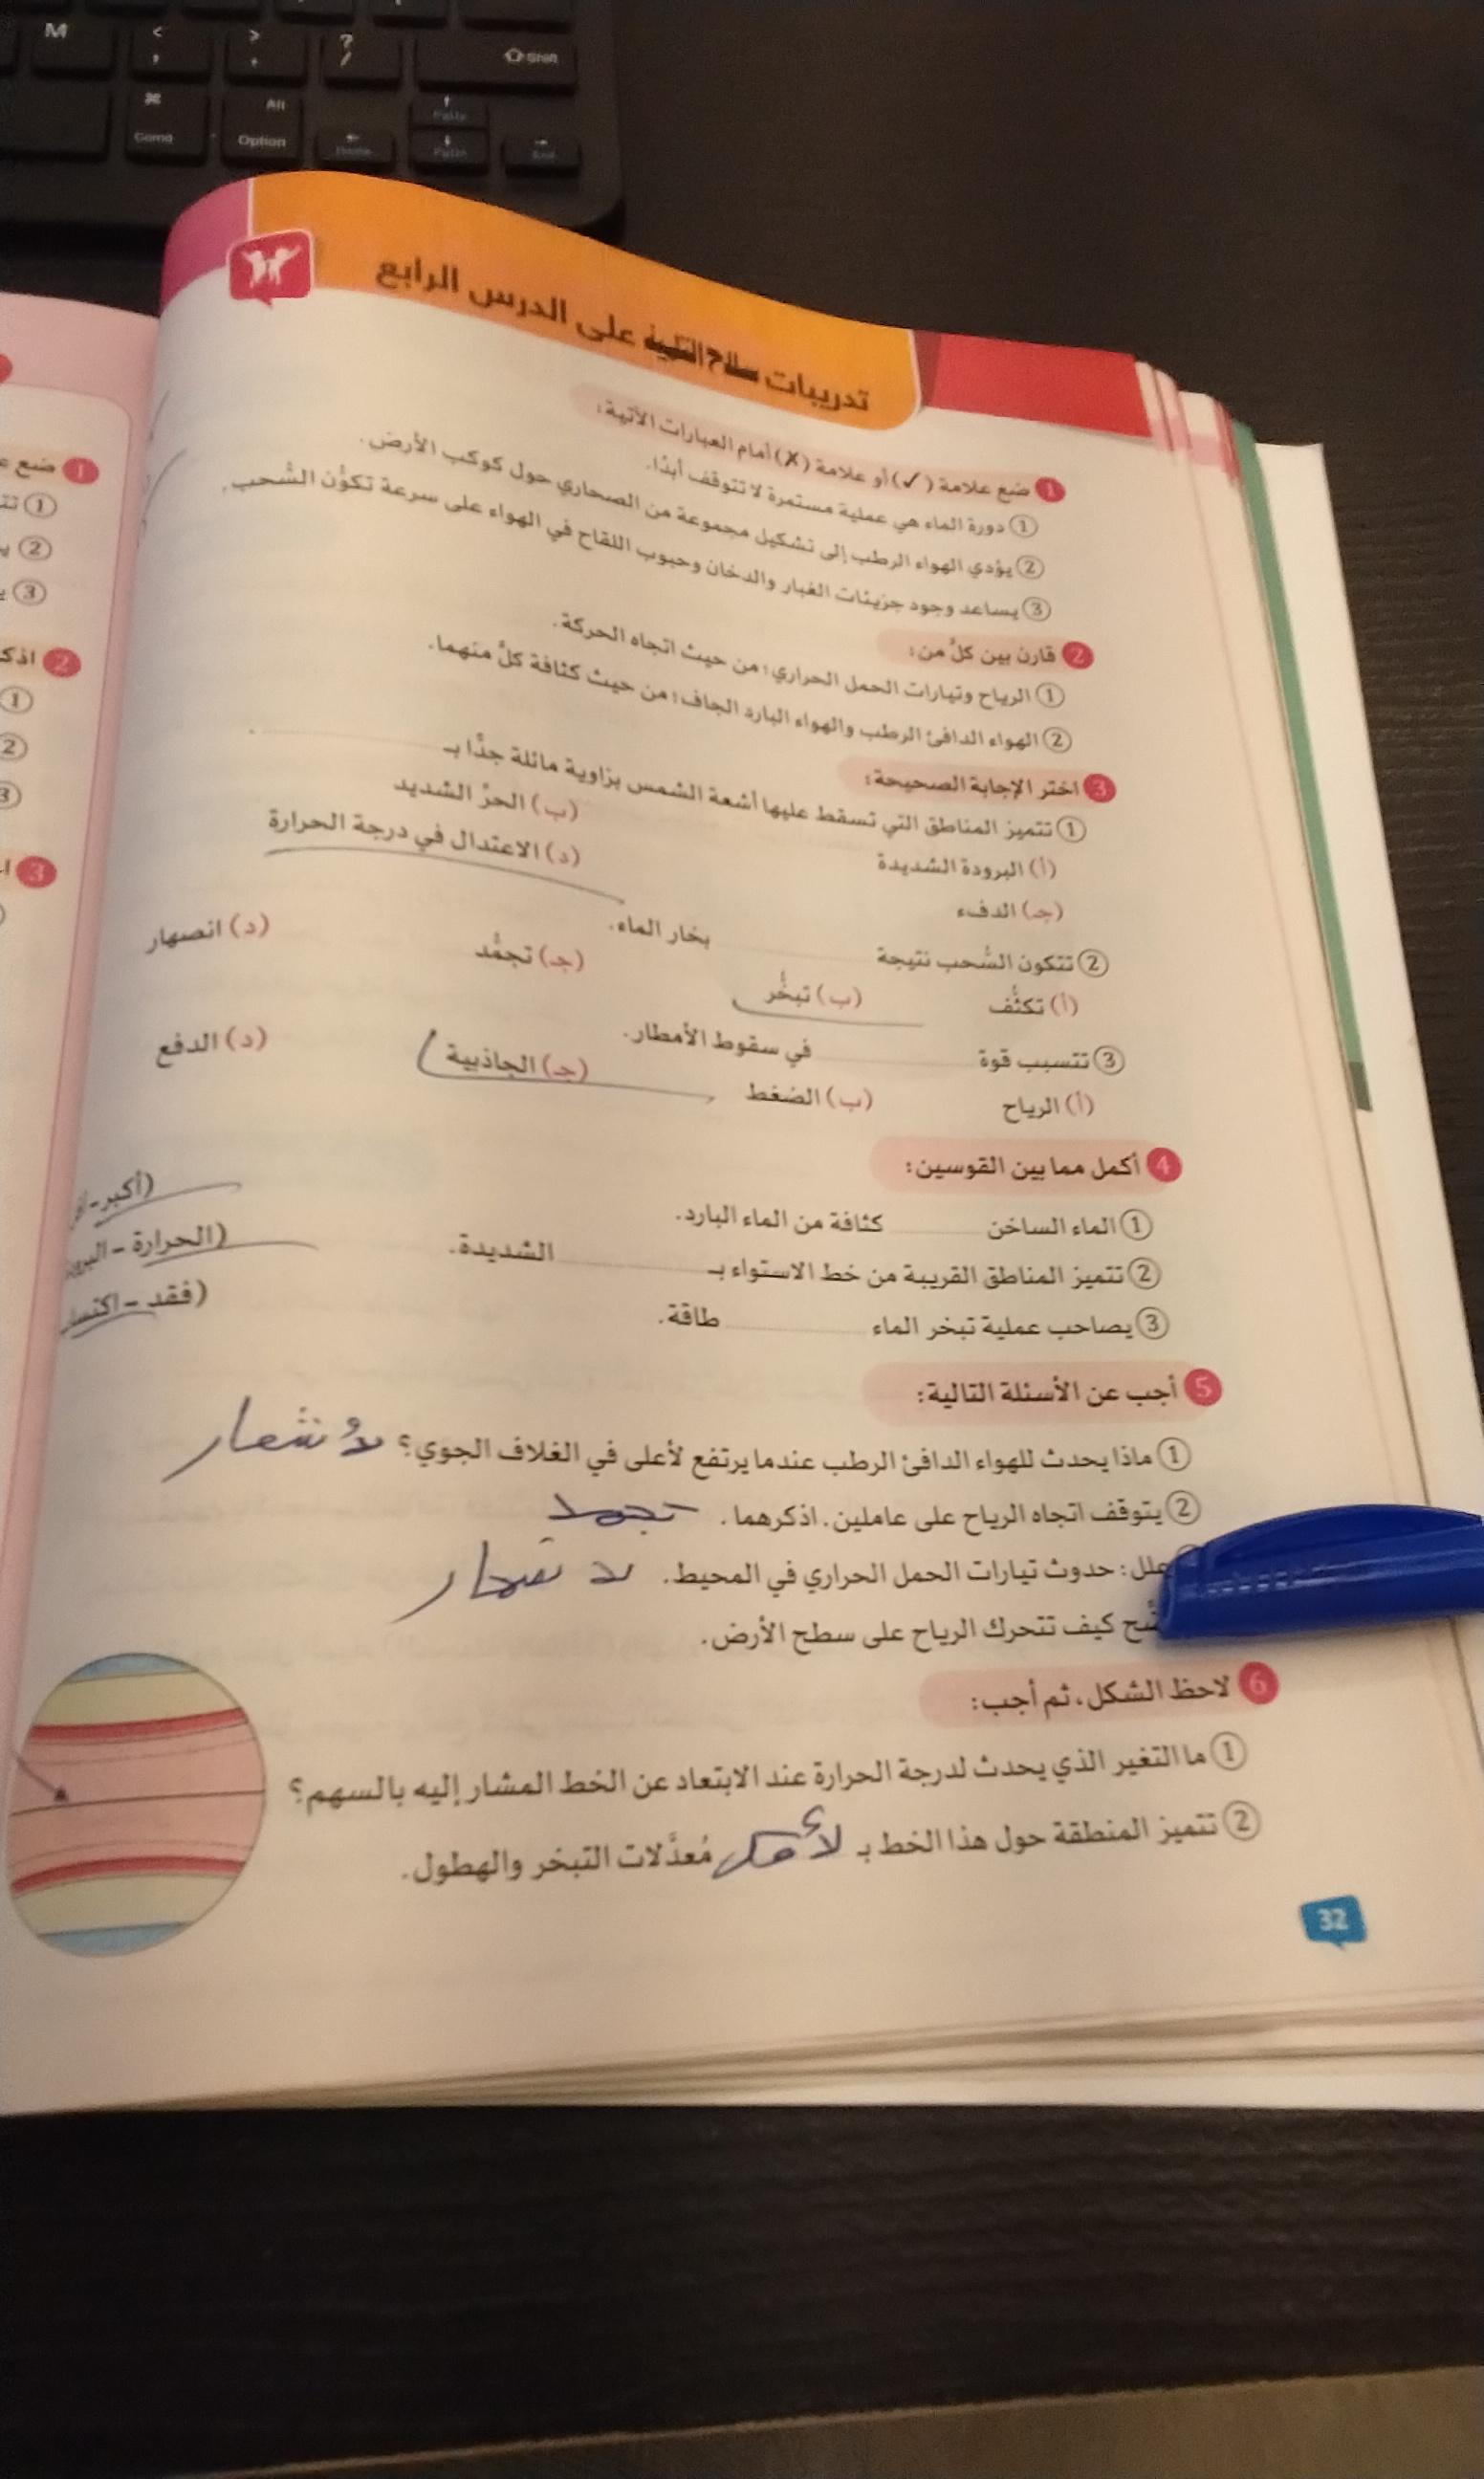 M
< ,
> .
? /
Shift
⌘ Comd
Alt Option
Home
PgUp
PgDn
End
تدريبات سلاح التلميذ على الدرس الرابع
1 ضع علامة (✓) أو علامة (✗) أمام العبارات الآتية:
① دورة الماء هي عملية مستمرة لا تتوقف أبدًا.
② يؤدي الهواء الرطب إلى تشكيل مجموعة من الصحاري حول كوكب الأرض.
③ يساعد وجود جزيئات الغبار والدخان وحبوب اللقاح في الهواء على سرعة تكوُّن السُّحب.
2 قارن بين كلٍّ من:
① الرياح وتيارات الحمل الحراري؛ من حيث اتجاه الحركة.
② الهواء الدافئ الرطب والهواء البارد الجاف؛ من حيث كثافة كلٍّ منهما.
3 اختر الإجابة الصحيحة:
① تتميز المناطق التي تسقط عليها أشعة الشمس بزاوية مائلة جدًّا بـ
(أ) البرودة الشديدة (ب) الحرِّ الشديد
(جـ) الدفء (د) الاعتدال في درجة الحرارة
② تتكون السُّحب نتيجة بخار الماء.
(أ) تكثُّف (ب) تبخُّر (جـ) تجمُّد (د) انصهار
③ تتسبب قوة في سقوط الأمطار.
(أ) الرياح (ب) الضغط (جـ) الجاذبية (د) الدفع
4 أكمل مما بين القوسين:
① الماء الساخن كثافة من الماء البارد. (أكبر -
② تتميز المناطق القريبة من خط الاستواء بـ الشديدة. (الحرارة -
③ يصاحب عملية تبخر الماء طاقة. (فقد -
5 أجب عن الأسئلة التالية:
① ماذا يحدث للهواء الدافئ الرطب عندما يرتفع لأعلى في الغلاف الجوي؟
② يتوقف اتجاه الرياح على عاملين. اذكرهما. تجمد
علل: حدوث تيارات الحمل الحراري في المحيط.
كيف تتحرك الرياح على سطح الأرض.
6 لاحظ الشكل، ثم أجب:
① ما التغير الذي يحدث لدرجة الحرارة عند الابتعاد عن الخط المشار إليه بالسهم؟
② تتميز المنطقة حول هذا الخط بـ مُعدَّلات التبخر والهطول.
32
1 ضع
①
②
③
2 اذكر
①
②
③
3